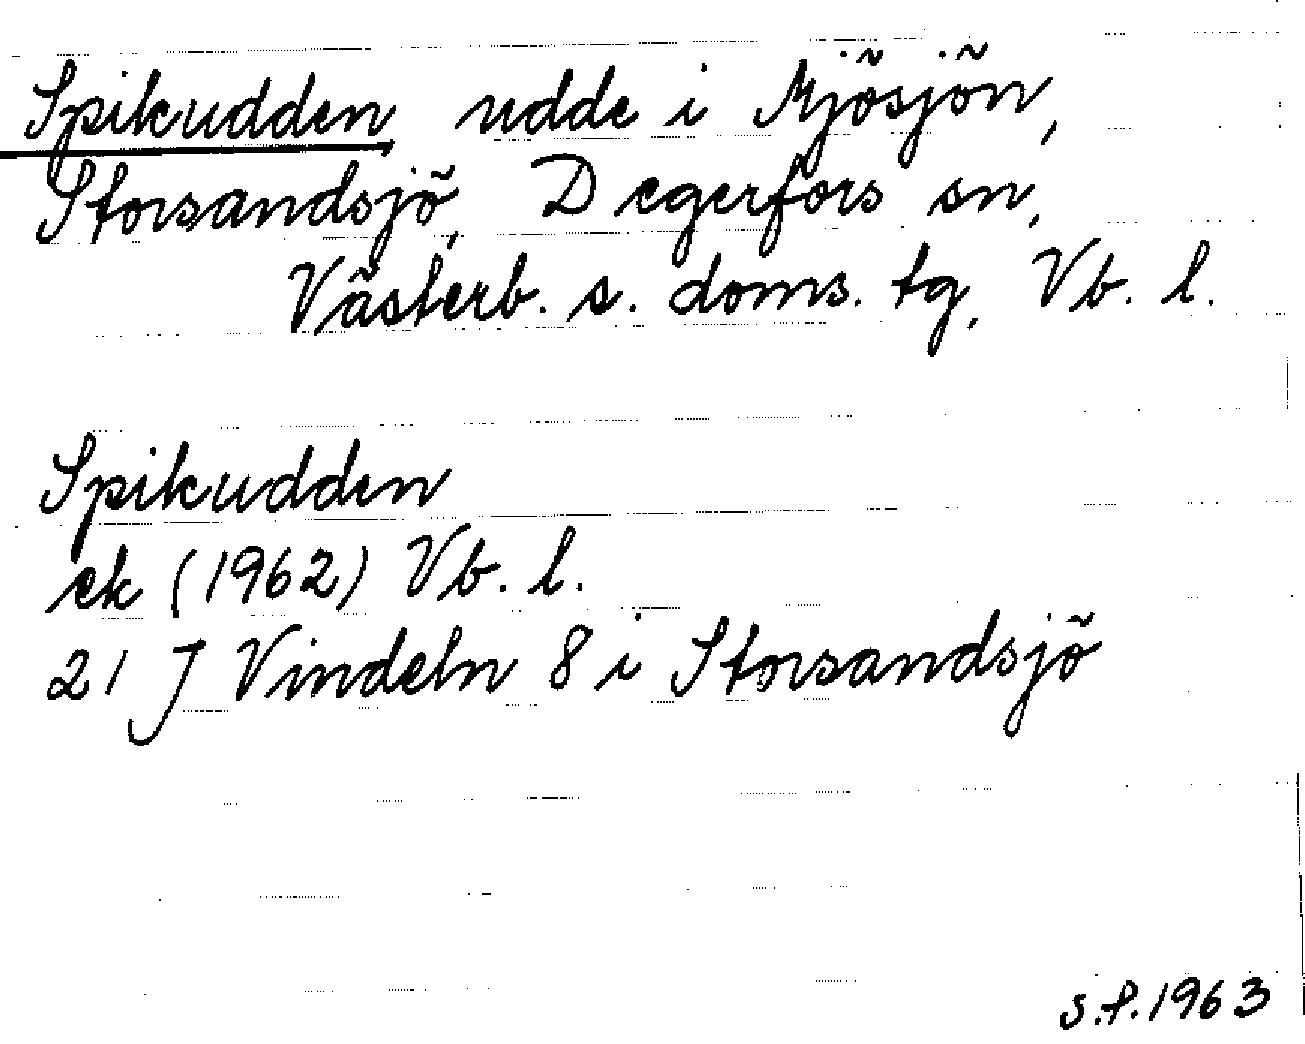 Spikudden, udde i Mjösjön,
Storsandsjö, Degerfors sn,
Västerb. s. doms. tg, Vb. l.
Spikudden
ek (1962) Vb. l.
21 J Vindeln 8 i Storsandsjö
S.f. 1963